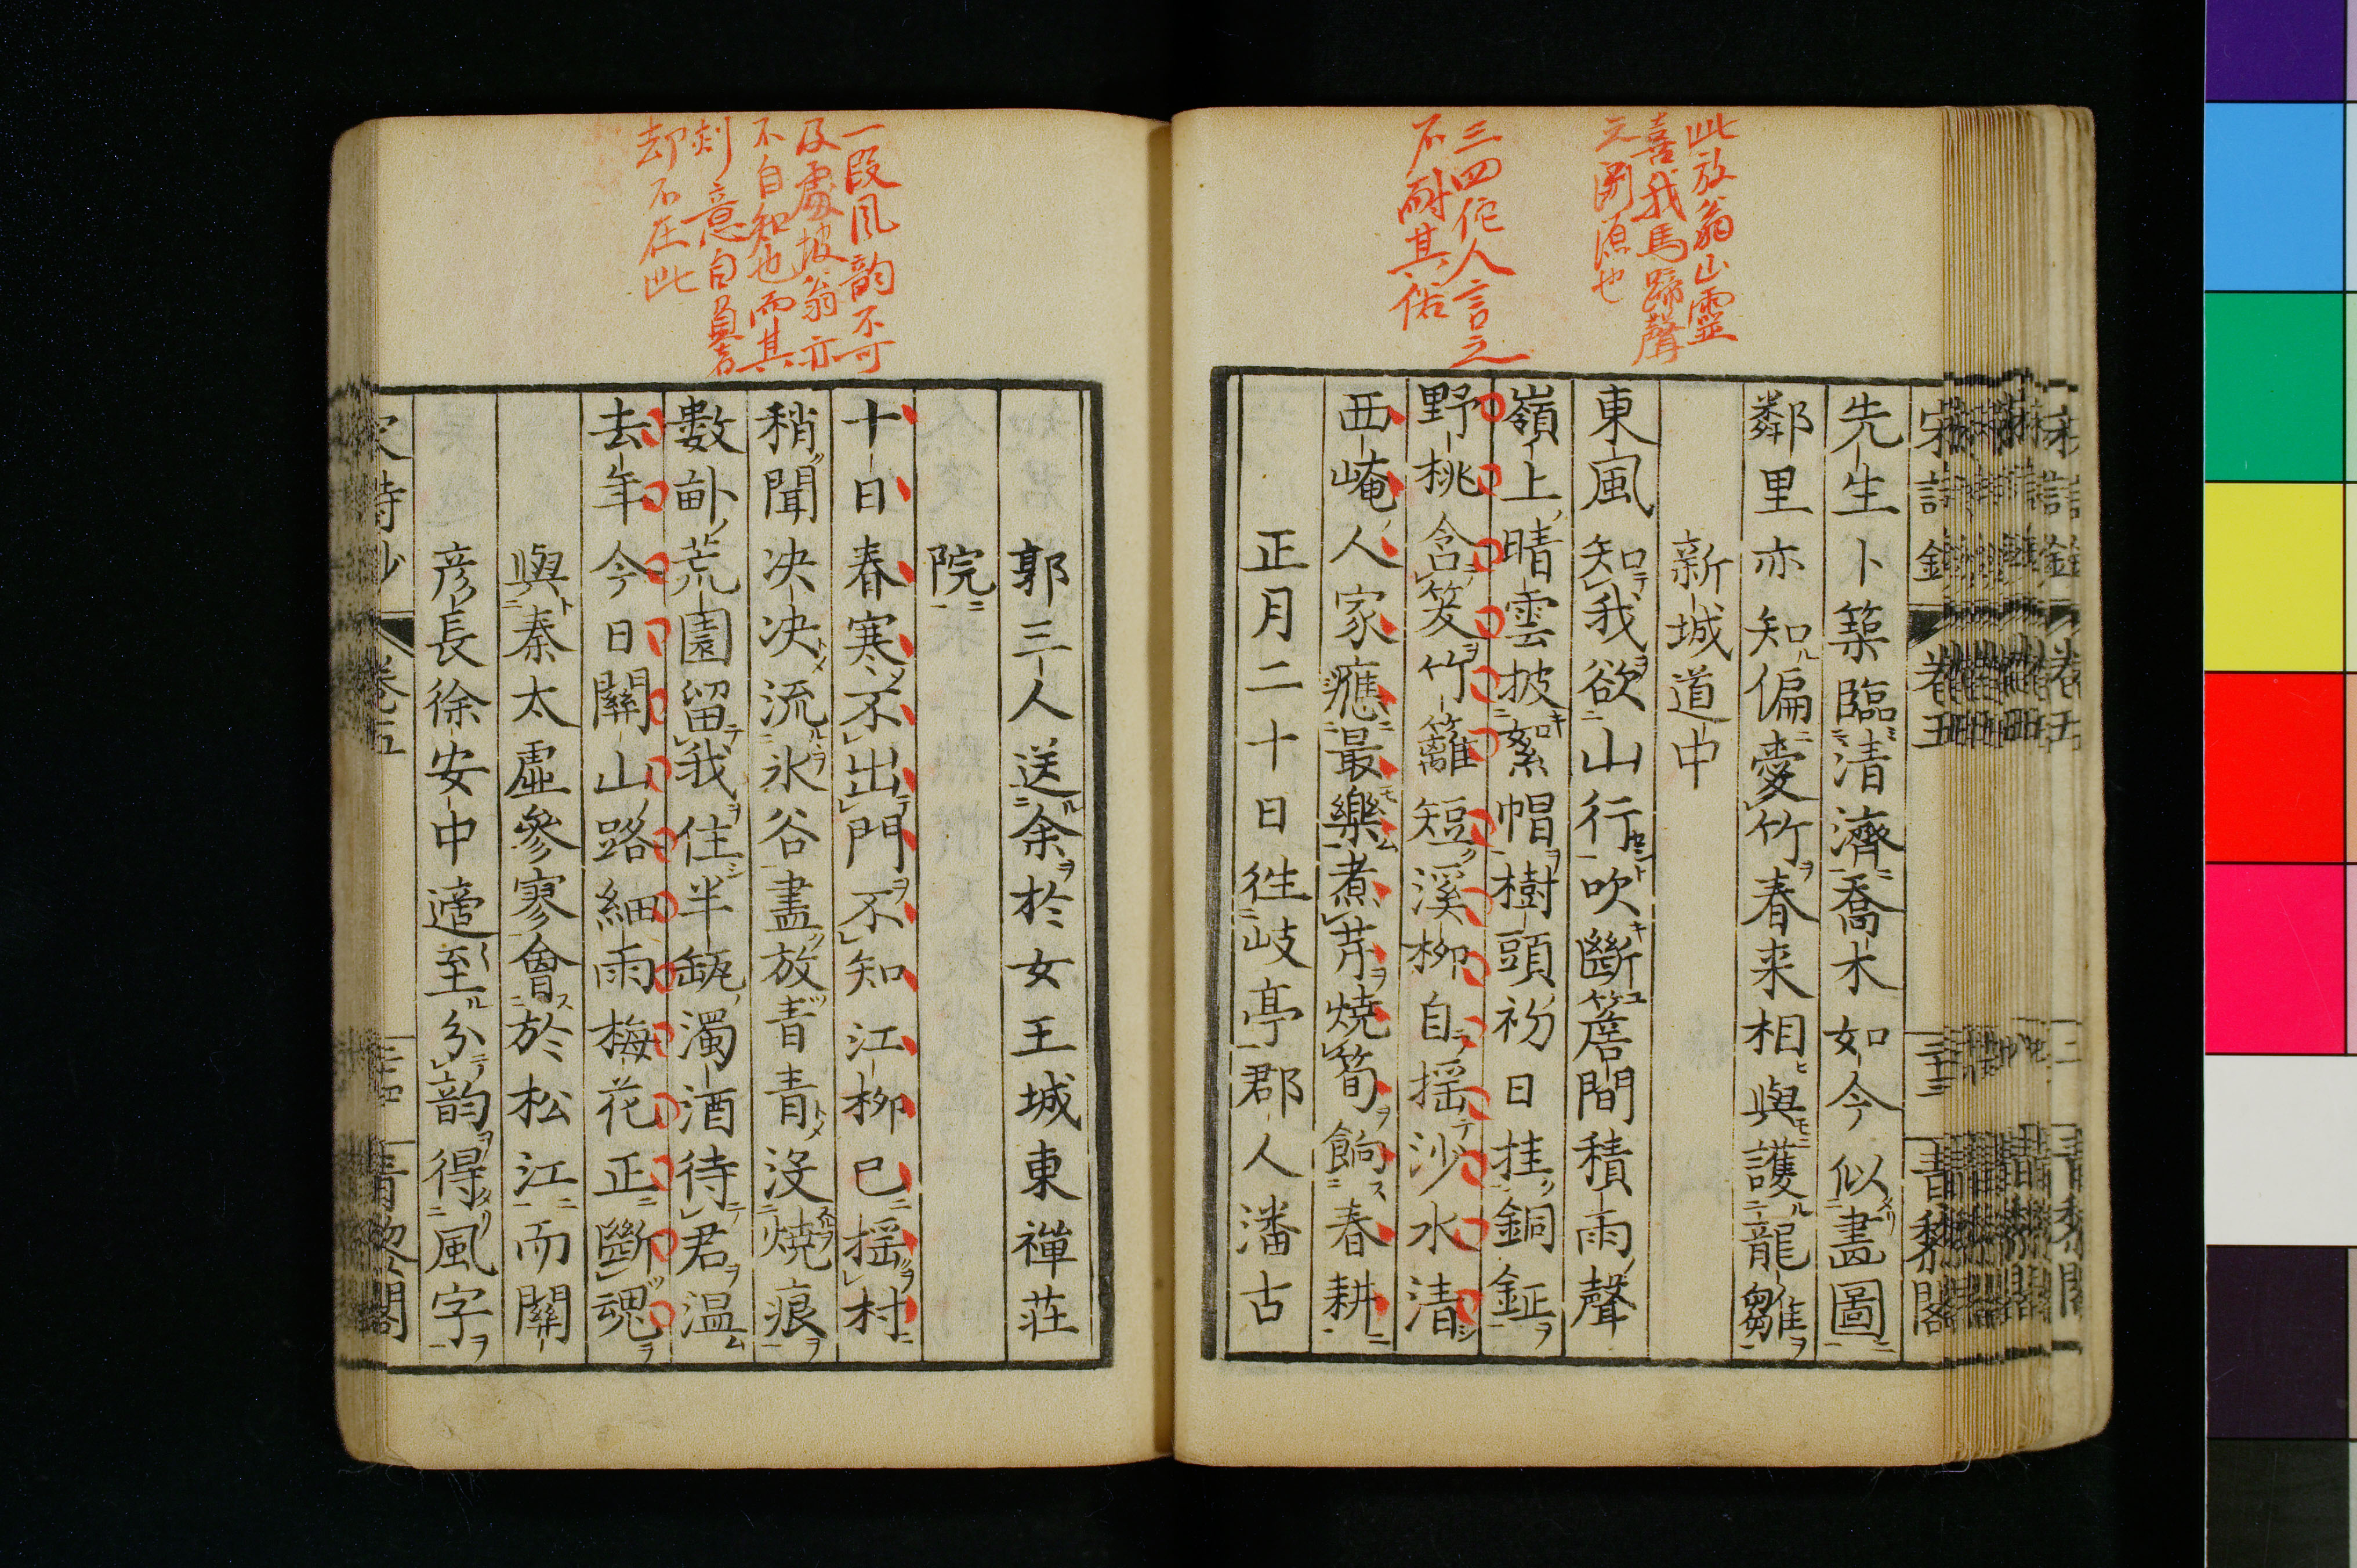 此放翁山靈
喜我馬蹄聲
之淵源也
三四佗人言之
不耐其俗
宋詩鈔 卷五 三十三 青藜閣
先生卜築臨清濟喬木如今似畫圖
鄰里亦知偏愛竹春来相與護龍雛
新城道中
東風知我欲山行吹斷簷間積雨聲
嶺上晴雲披絮帽樹頭初日挂銅鉦
野桃含笑竹籬短溪柳自揺沙水清
西崦人家應最樂煮芹燒筍餉春耕
正月二十日徃岐亭郡人潘古
一段風韵不可
及處坡翁亦
不自知也而其
刻意自負者
却不在此
郭三人送余於女王城東禪荘
院
十日春寒不出門不知江柳已揺村
稍聞决决流氷谷盡放青青没燒痕
數畝荒園留我住半瓶濁酒待君温
去年今日關山路細雨梅花正斷魂
與秦太虛參寥會於松江而關
彦長徐安中適至分韵得風字
宋詩鈔 卷五 三十四 青藜閣